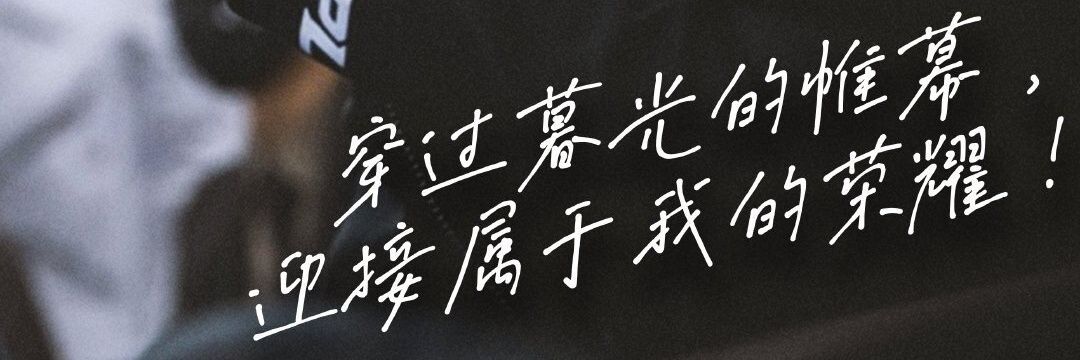 穿过暮光的帷幕，
迎接属于我的荣耀！